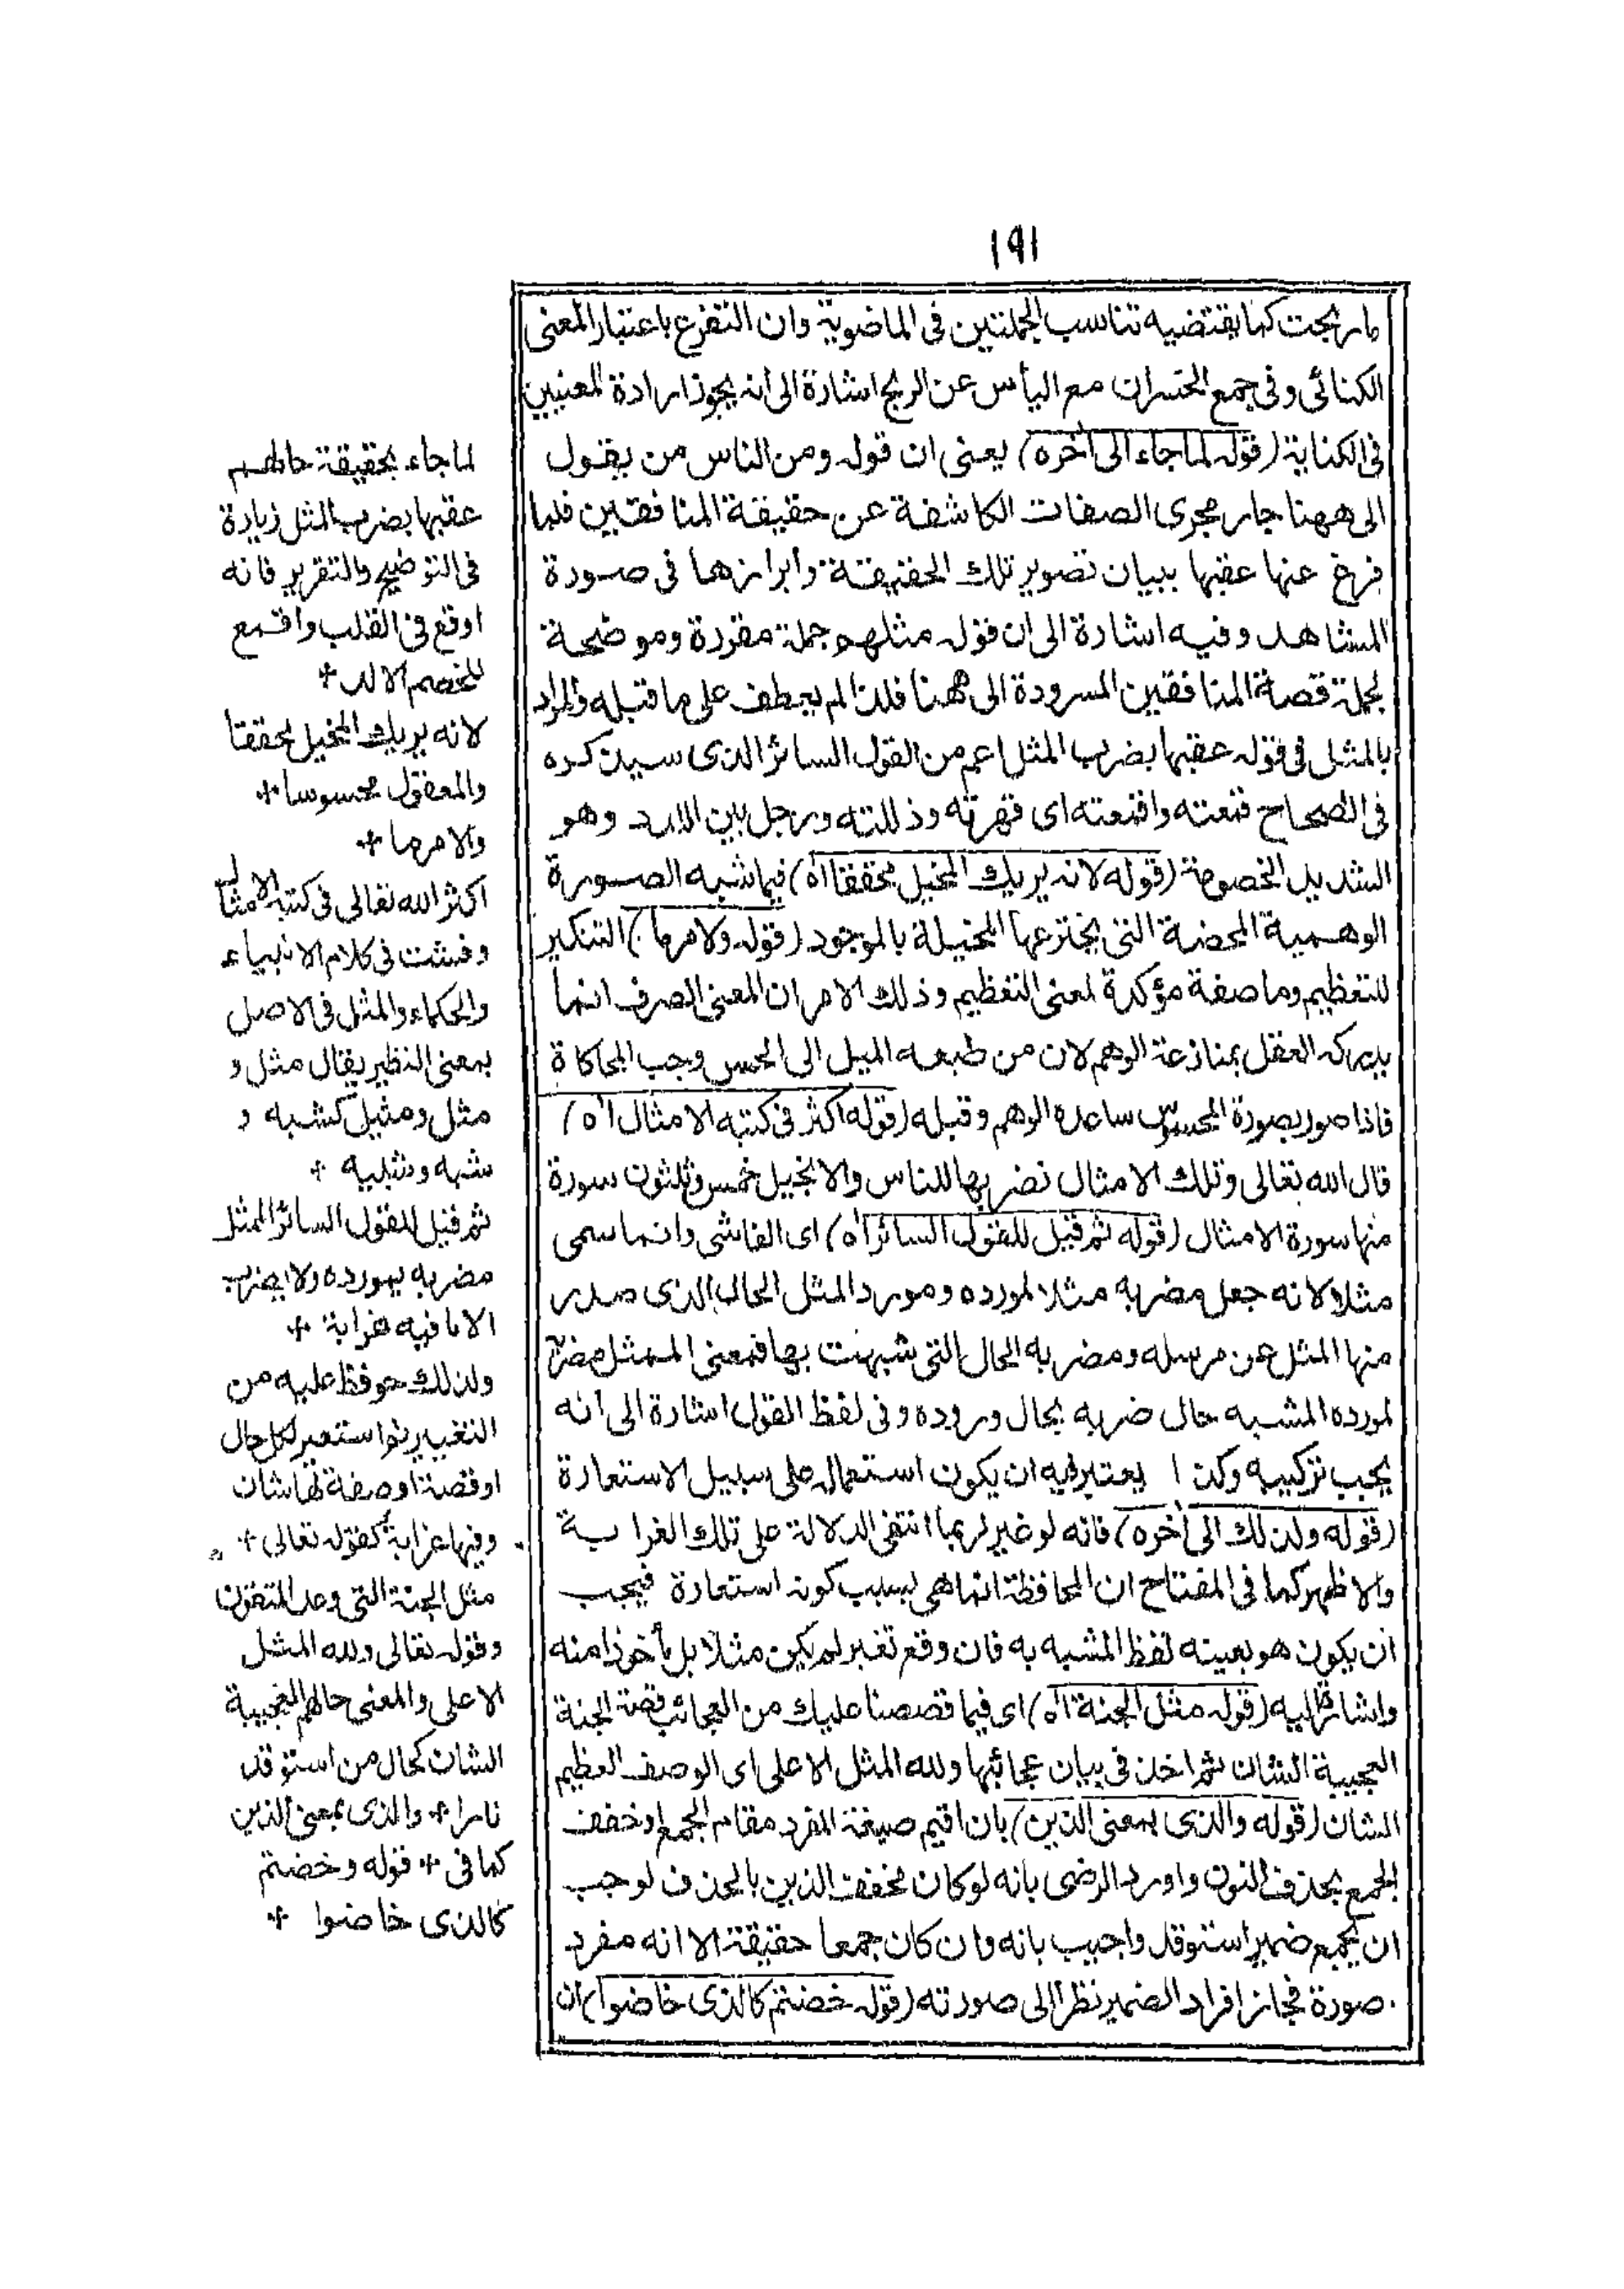 ١٩١
ما ربحت كما يقتضيه تناسب الجملتين فى الماضوية وان التفرع باعتبار المعنى
الكنائى وفى جمع الخسران مع اليأس عن الربح اشارة الى انه يجوز ارادة المعنيين
فى الكناية (قوله لما جاء الى آخره) يعنى ان قوله ومن الناس من يقول
الى ههنا جار مجرى الصفات الكاشفة عن حقيقة المنافقين فلما
فرغ عنها عقبها ببيان تصوير تلك الحقيقة وابرازها فى صورة
المشاهد وفيه اشارة الى ان قوله مثلهم جملة مقررة وموضحة
لجملة قصة المنافقين المسرودة الى ههنا فلذا لم يعطف على ما قبله والمراد
بالمثل فى قوله عقبها بضرب المثل اعم من القول السائر الذى سيذكره
فى الصحاح قمعته واقمعته اى قهرته وذللته ورجل بين اللدد وهو
الشديد الخصومة (قوله لانه يريك المخيل محققا اه) فيما شبه الصورة
الوهمية المحضة التى يخترعها المخيلة بالموجود (قوله ولامر ما) التنكير
للتعظيم وما صفة مؤكدة لمعنى التعظيم وذلك الامر ان المعنى الصرف انما
يدركه العقل بمنازعة الوهم لان من طبعه الميل الى الحس وجب المحاكاة
فاذا صور بصورة المحسوس ساعده الوهم وقبله (قوله اكثر فى كتبه الامثال اه)
قال الله تعالى وتلك الامثال نضربها للناس والانجيل خمس وثلثون سورة
منها سورة الامثال (قوله ثم قيل للقول السائر اه) اى الفاشى وانما سمى
مثلا لانه جعل مضربه مثلا لمورده ومورد المثل الحال الذى صدر
منها المثل عن مرسله ومضربه الحال التى شبهت بها فمعنى الممثل مضربه
لمورده المشبه حال ضربه بحال وروده وفى لفظ القول اشارة الى انه
يجب تركيبه وكذا يعتبر فيه ان يكون استعماله على سبيل الاستعارة
(قوله ولذلك الى آخره) فانه لو غير لربما انتفى الدلالة على تلك الغرابة
والاظهر كما فى المفتاح ان المحافظة انما هى بسبب كونه استعارة فيجب
ان يكون هو بعينه لفظ المشبه به فان وقع تغير لم يكن مثلا بل مأخوذا منه
واشارة اليه (قوله مثل الجنة اه) اى فيما قصصنا عليك من العجائب قصة الجنة
العجيبة الشان ثم اخذ فى بيان عجائبها ولله المثل الاعلى اى الوصف العظيم
الشان (قوله والذى بمعنى الذين) بان اقيم صيغة المفرد مقام الجمع او خفف
الجمع بحذف النون واورد الرضى بانه لو كان مخفف الذين بالحذف لوجب
ان يجمع ضمير استوقد واجيب بانه وان كان جمعا حقيقة الا انه مفرد
صورة فجاز افراد الضمير نظرا الى صورته (قوله خضتم كالذى خاضوا) ان
لما جاء بحقيقة حالهم
عقبها بضرب المثل زيادة
فى التوضيح والتقرير فانه
اوقع فى القلب واقمع
للخصم الالد +
لانه يريك المخيل محققا
والمعقول محسوسا +
ولامر ما +
اكثر الله تعالى فى كتبه الامثال
وفشت فى كلام الانبياء
والحكماء والمثل فى الاصل
بمعنى النظير يقال مثل و
مثل ومثيل كشبه و
شبه وشبيه +
ثم قيل للقول السائر الممثل
مضربه بمورده ولا يضرب
الا ما فيه غرابة +
ولذلك حوفظ عليه من
التغيير ثم استعير لكل حال
او قصة او صفة لها شان
وفيها غرابة كقوله تعالى +
مثل الجنة التى وعد المتقون
وقوله تعالى ولله المثل
الاعلى والمعنى حالهم العجيبة
الشان كحال من استوقد
نارا + والذى بمعنى الذين
كما فى + قوله وخضتم
كالذى خاضوا +